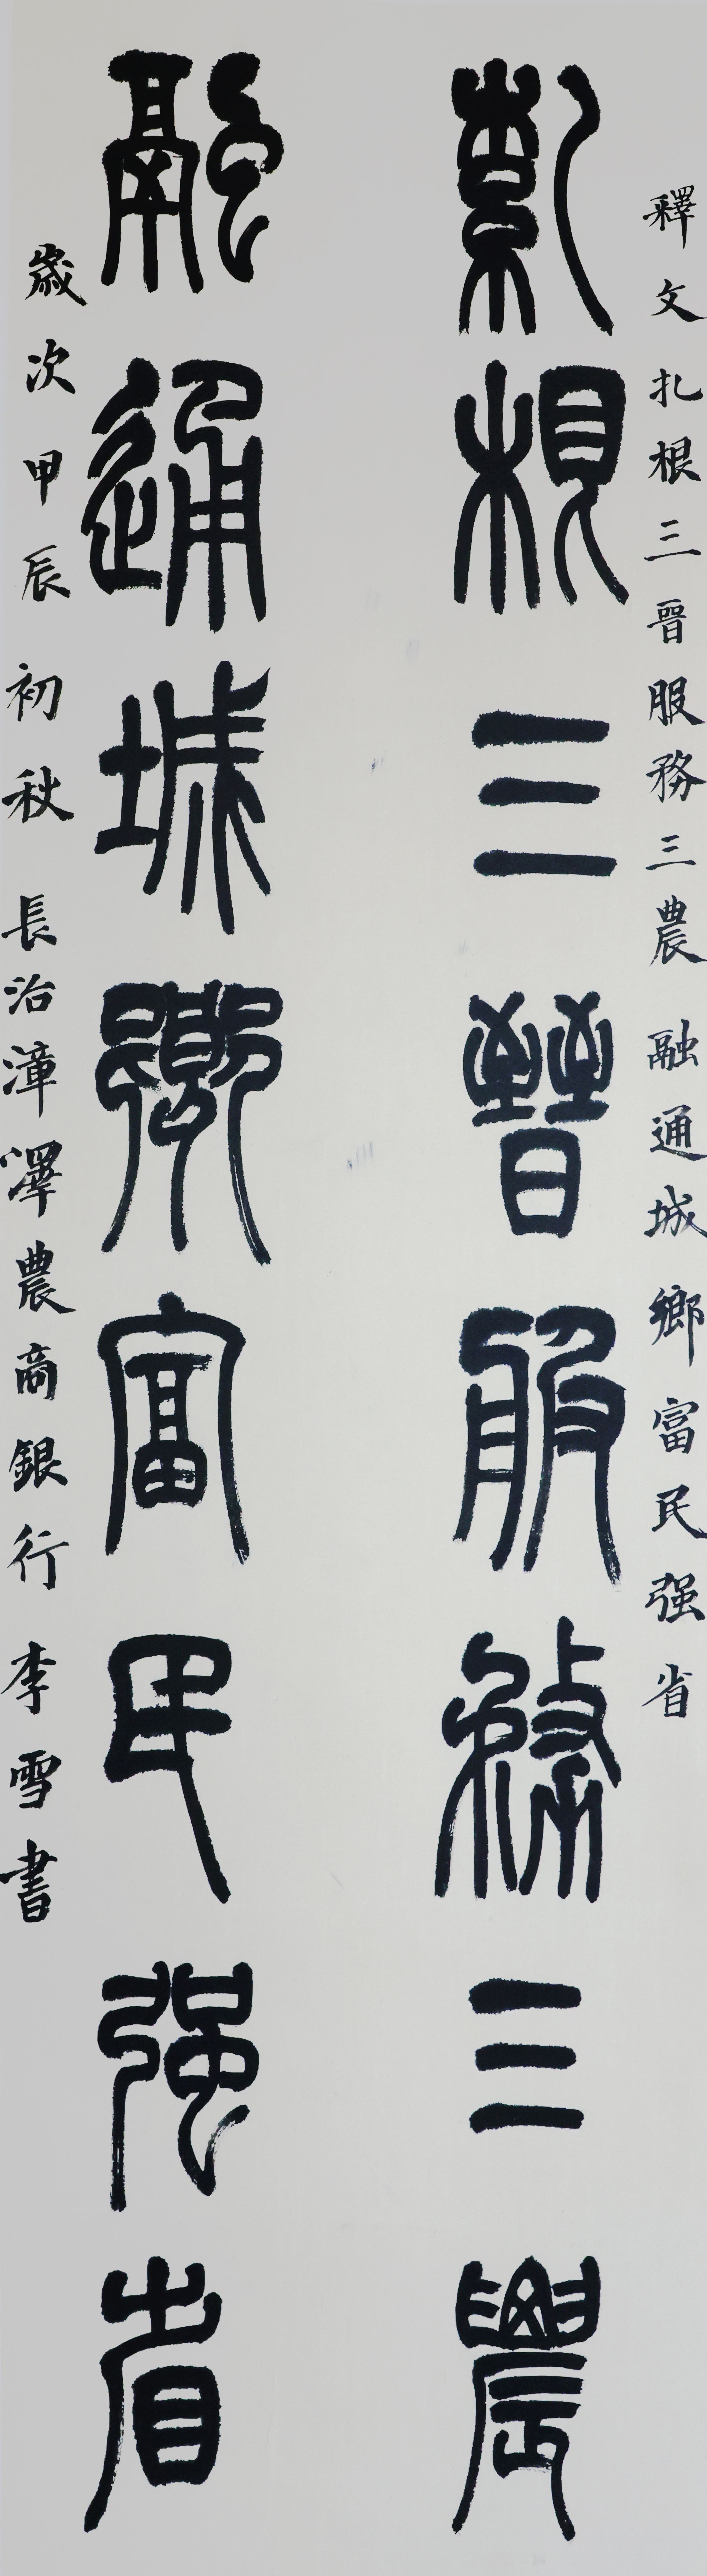 釋文扎根三晉服務三農 融通城鄉富民强省
紮根三晉服務三農
融通城鄉富民强省
歲次甲辰初秋 長治漳澤農商銀行 李雪書